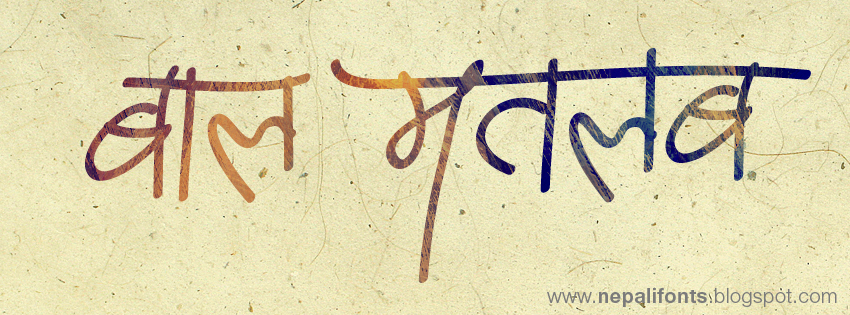 बाल मतलब
www.nepalifonts.blogspot.com